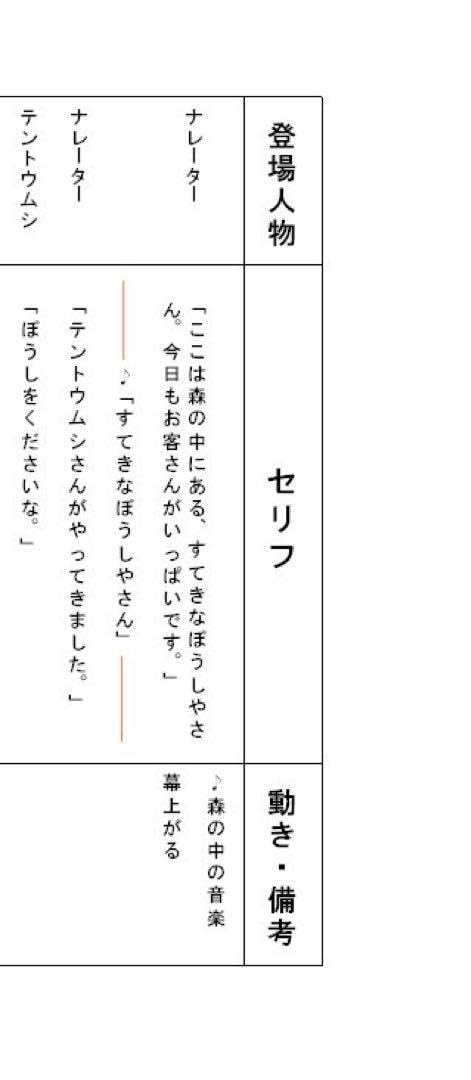 登場人物
セリフ
動き・備考
ナレーター
「ここは森の中にある、すてきなぼうしやさ
ん。今日もお客さんがいっぱいです。」
♪森の中の音楽
幕上がる
♪「すてきなぼうしやさん」
ナレーター
「テントウムシさんがやってきました。」
テントウムシ
「ぼうしをくださいな。」